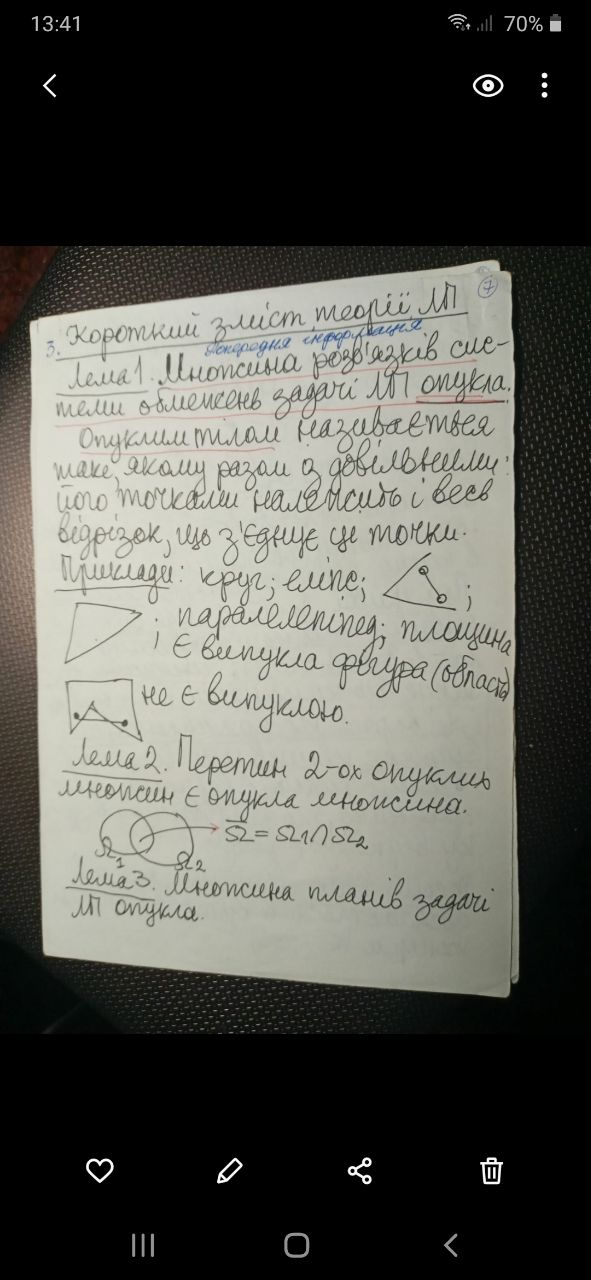 13:41
70%
7
3. Короткий зміст теорії ЛП
інформація
Лема 1. Множина розв'язків сис-
теми обмежень задачі ЛП опукла.
Опуклим тілом називається
таке, якому разом із довільними
його точками належить і весь
відрізок, що з'єднує ці точки.
Приклади: круг; еліпс; ;
; паралелепіпед; площина
Є випукла фігура (область)
не є випуклою.
Лема 2. Перетин 2-ох опуклих
множин є опукла множина.
Ω = Ω1 ∩ Ω2
Ω1 Ω2
Лема 3. Множина планів задачі
ЛП опукла.